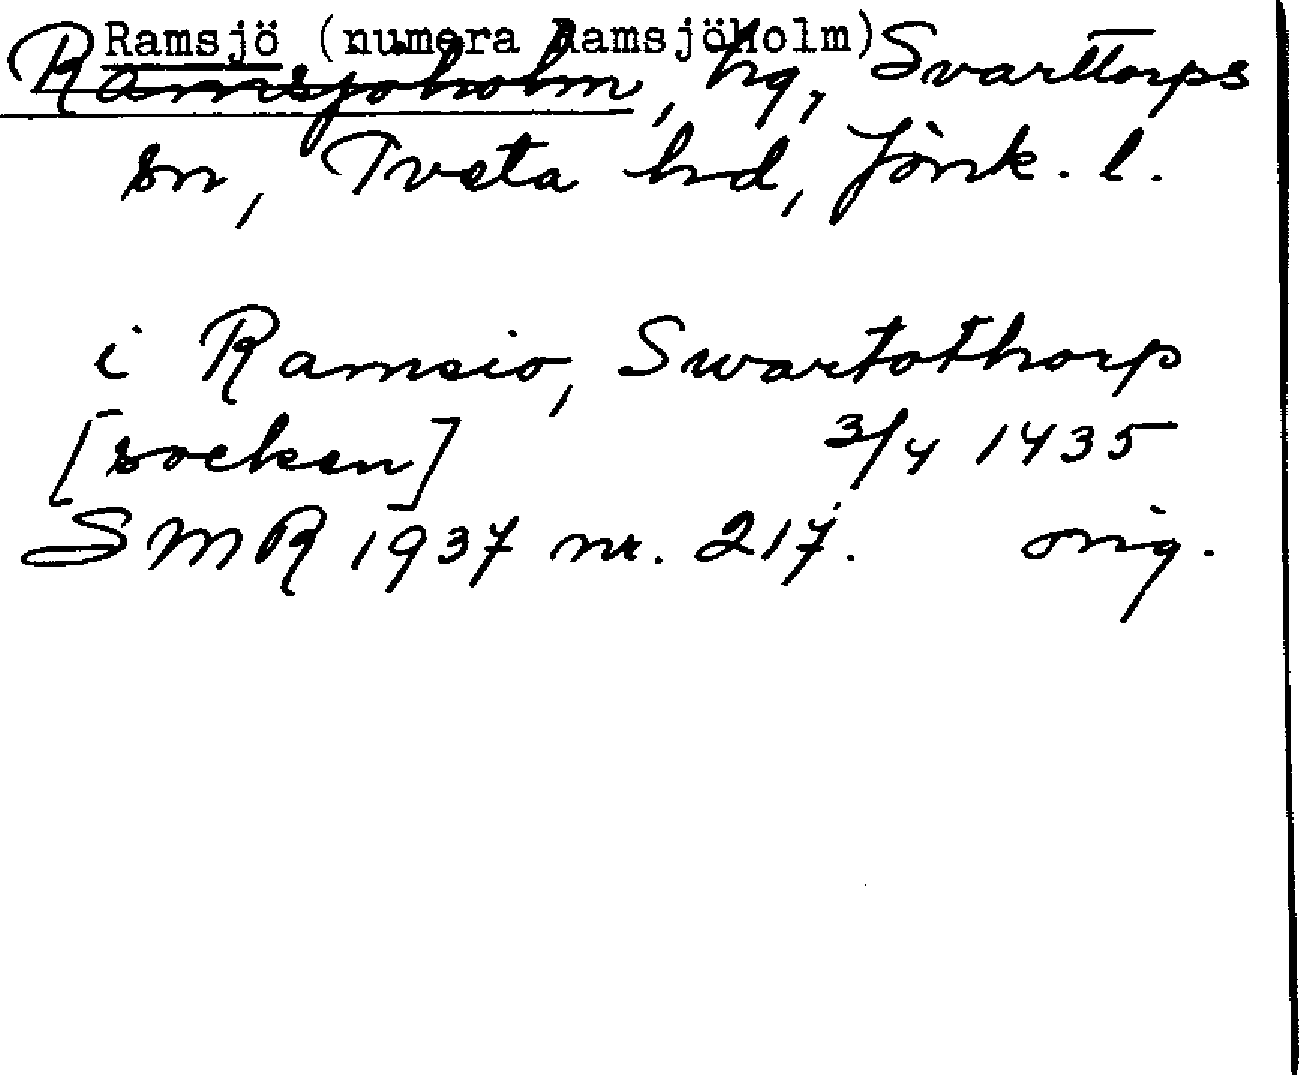 Ramsjö (numera Ramsjöholm)
Ramsjöholm, hg, Svarttorps
sn, Tveta hd, Jönk. l.
i Ramsio, Swartothorp
[socken] 3/4 1435
SMR 1937 nr. 217. orig.